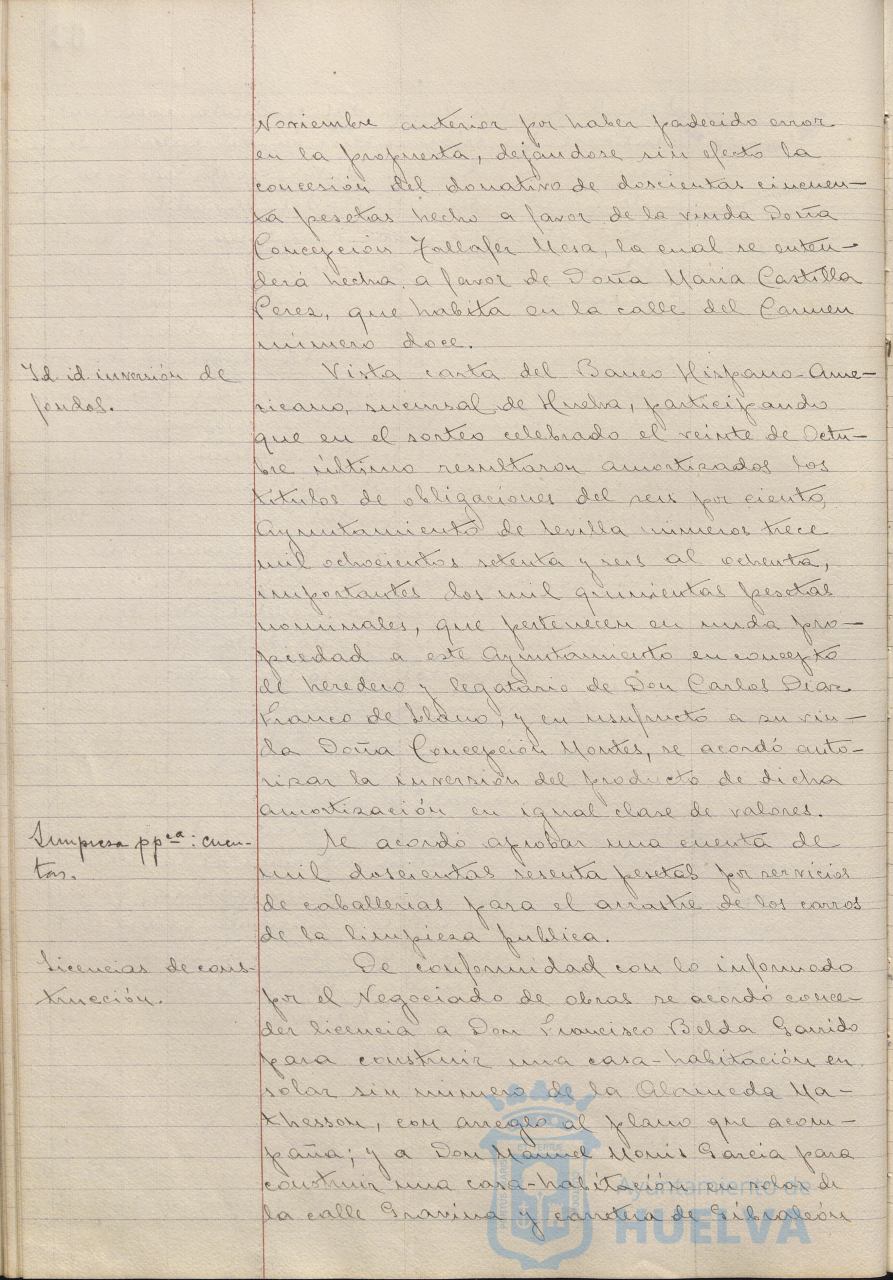 Noviembre anterior por haber padecido error
en la propuesta, dejándose sin efecto la
concesión del donativo de doscientas cincuen-
ta pesetas hecho a favor de la viuda Doña
Concepción Fallafer Mesa, la cual se enten-
derá hecha a favor de Doña María Castilla
Perez, que habita en la calle del Carmen
número doce.
Id. id. inversión de
fondos.
Vista carta del Banco Hispano-Ame-
ricano, sucursal de Huelva, participando
que en el sorteo celebrado el veinte de Octu-
bre último resultaron amortizados los
títulos de obligaciones del seis por ciento,
Ayuntamiento de Sevilla números trece
mil ochocientos setenta y seis al ochenta,
importantes dos mil quinientas pesetas
nominales, que pertenecen en nuda pro-
piedad a este Ayuntamiento en concepto
de heredero y legatario de Don Carlos Diaz
Franco de Llano, y en usufructo a su viu-
da Doña Concepción Montes, se acordó auto-
rizar la inversión del producto de dicha
amortización en igual clase de valores.
Limpieza ppca: cuen-
tas.
Se acordó aprobar una cuenta de
mil doscientas sesenta pesetas por servicios
de caballerias para el arrastre de los carros
de la limpieza publica.
Licencias de cons-
trucción.
De conformidad con lo informado
por el Negociado de obras se acordó conce-
der licencia a Don Francisco Belda Garrido
para construir una casa-habitación en
solar sin número de la Alameda Ma-
thesson, con arreglo al plano que acom-
paña; y a Don Manuel Monis Garcia para
construir una casa-habitación en solar de
la calle Gravina y carretera de Gibraleón
Ayuntamiento de
HUELVA